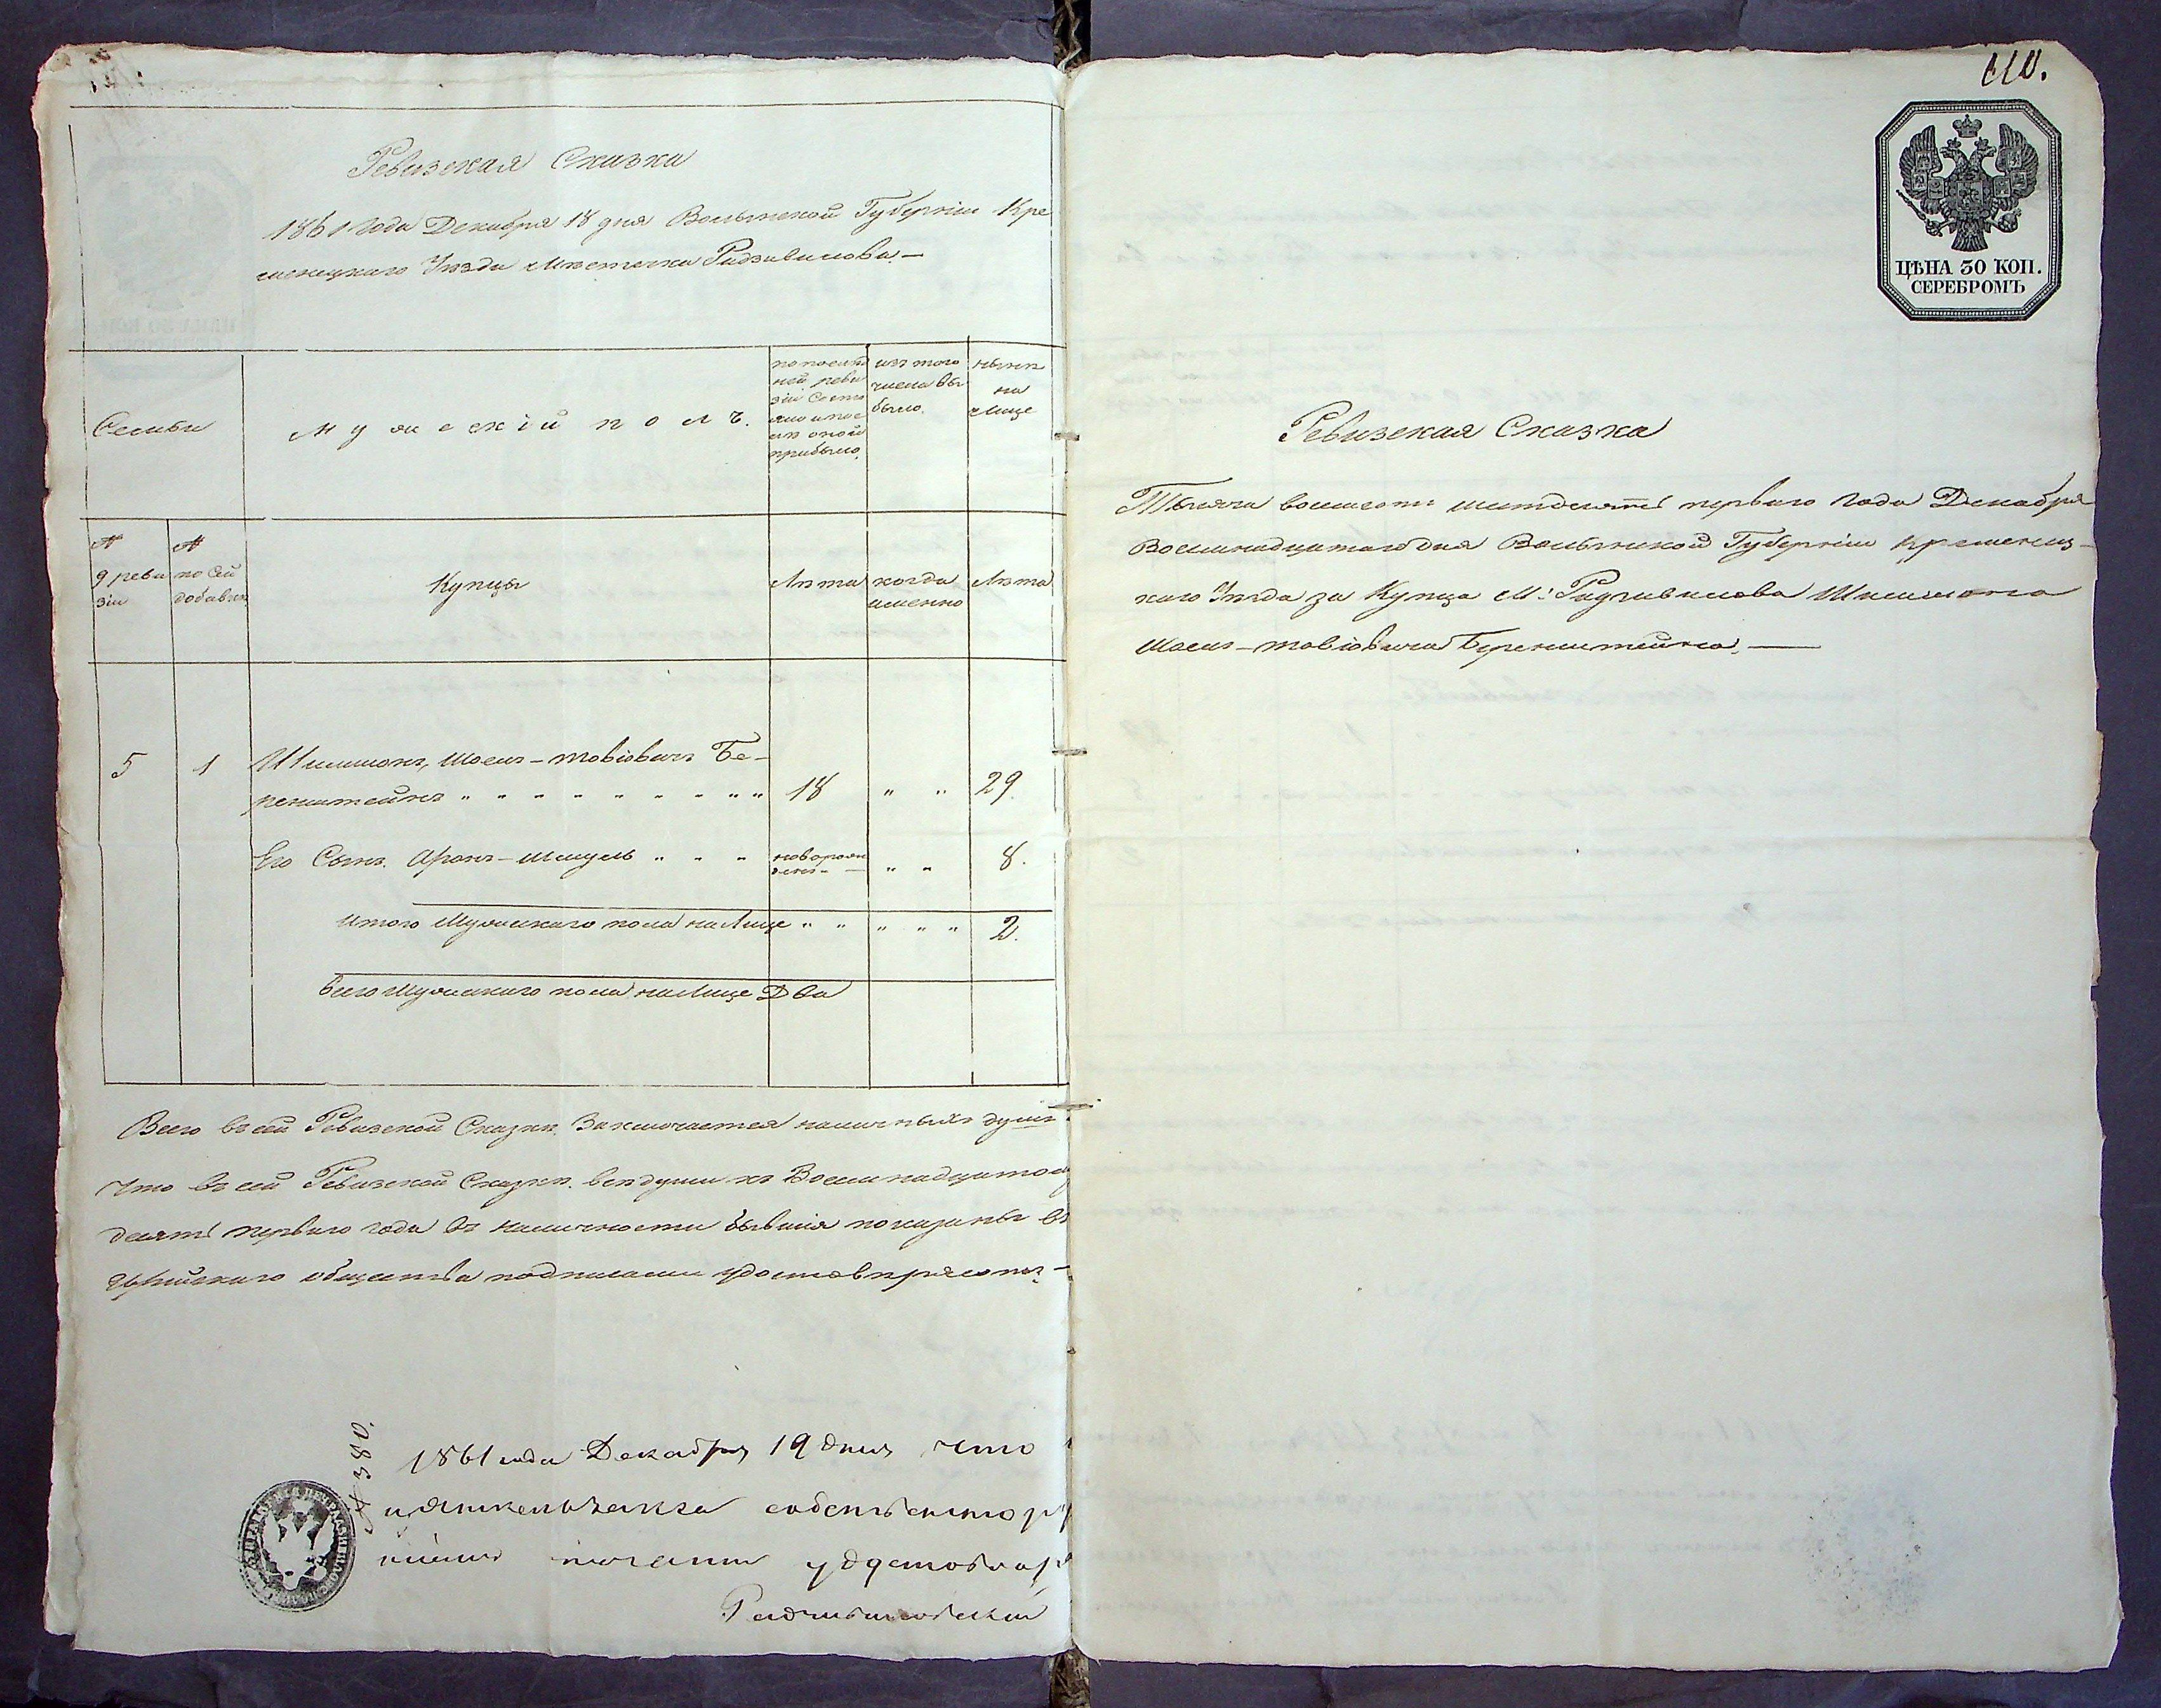 Ревизская Сказка
1861 Года Декабря 18 дня Волынской Губерніи Кре
менецкаго Уѣзда Мѣстечка Радзивилова.—
Семьи
Мужескій полъ.
по послѣд
ней реви
зіи Состо
яло и пос
лѣ оной
прибыло.
изъ того
числа вы
было.
нынѣ
на
Лице
№
9 реви
зіи
№
по сей
добавоч.
Купцы
Лѣта
когда
именно
Лѣта
5 1 Шлиомъ, Мосш-товіовичъ Бе-
ренштейнъ " " " " " " " " 18 " " 29.
Его Сынъ. Аронъ-Шмуль " " " новорож
денъ " " 8.
Итого Мужескаго пола на Лице " " " " " 2.
Всего Мужескаго пола на Лице Два
Всего въ сей Ревизской Сказкѣ Заключается наличныхъ душъ
Что въ сей Ревизской Сказкѣ всѣ души къ Восемнадцатом
десятъ перваго года въ наличности бывшія показаны въ
общества подписами удостовѣряемъ.—
№ 380.
1861 года Декабря 19 дня, что
собственнор
печати удостовѣр
Радзивиловскій
110.
ЦѢНА 30 КОП.
СЕРЕБРОМЪ
Ревизская Сказка
Тысяча восмсотъ шестдесятъ перваго Года Декабря
Восемнадцатаго дня Волынской Губерніи Кременец-
каго Уѣзда за Купца М: Радзивилова
товіовича Беренштейна.—